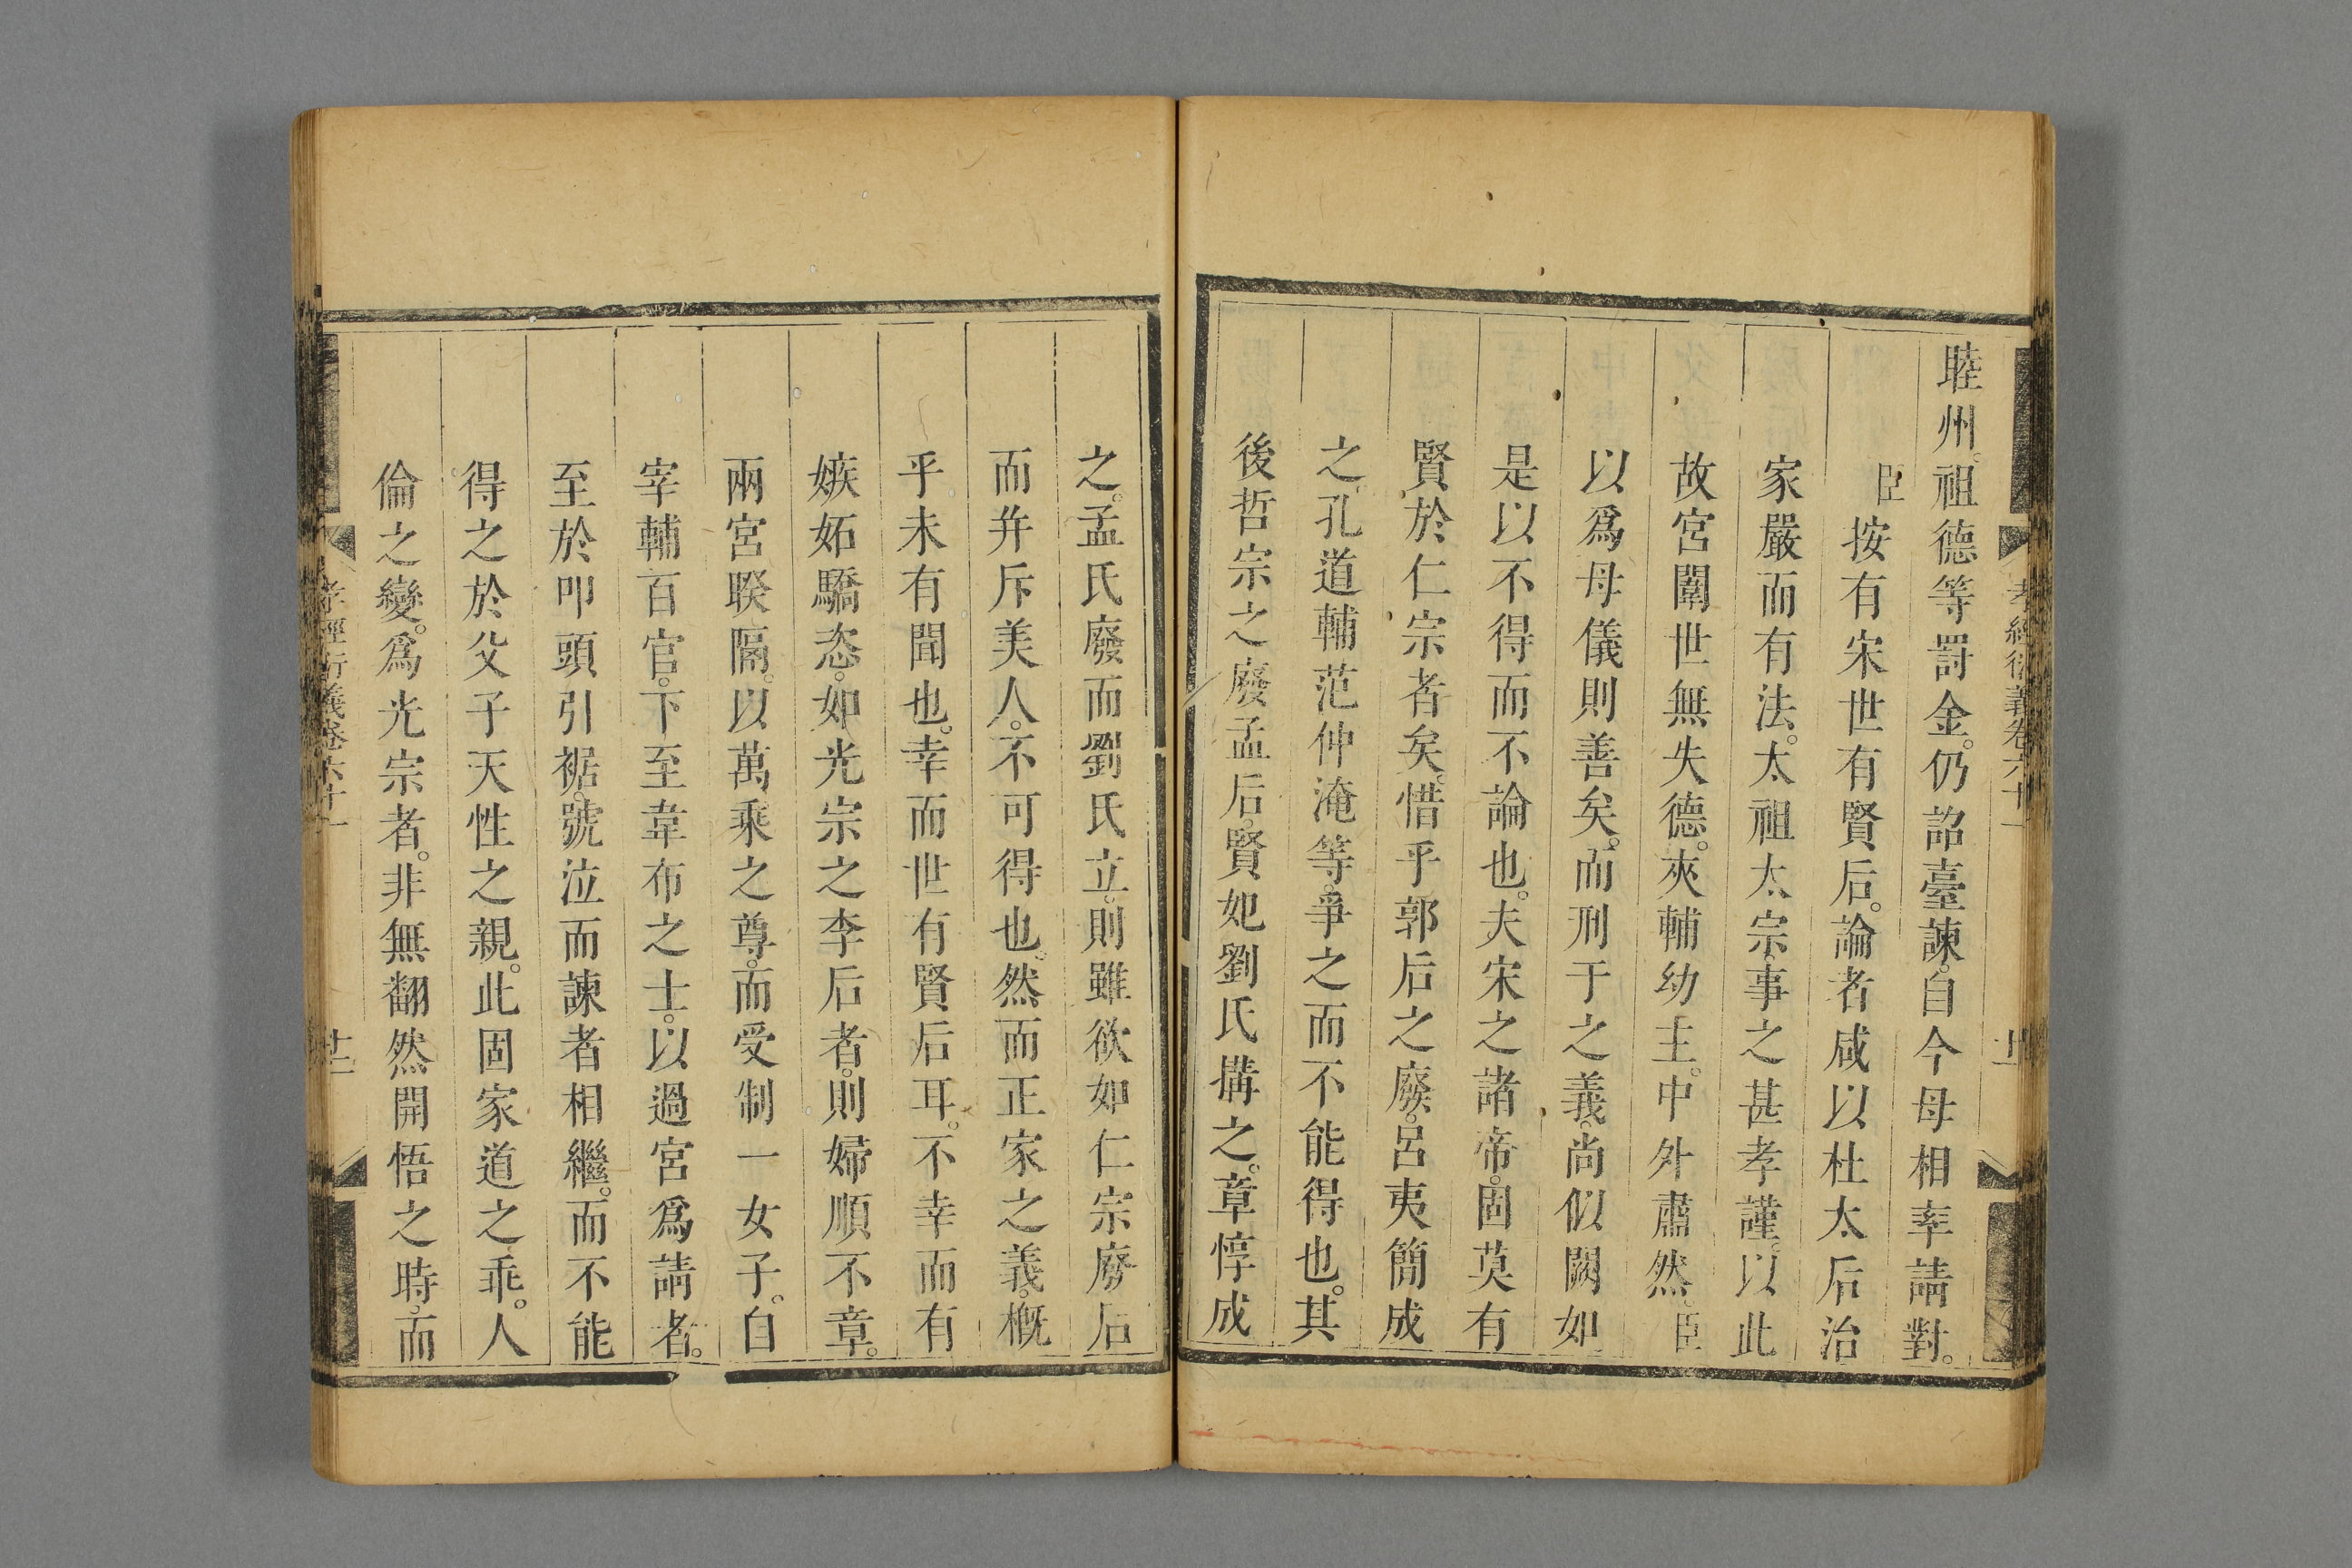 孝經衍義卷六十一
睦州。祖德等罰金。仍詔臺諫。自今毋相率請對。
臣按有宋世有賢后。論者咸以杜太后治
家嚴而有法。太祖太宗事之甚孝謹。以此
故宮闈世無失德。夾輔幼主。中外肅然。臣
以爲母儀則善矣。而刑于之義。尚似闕如
是以不得而不論也。夫宋之諸帝。固莫有
賢於仁宗者矣。惜乎郭后之廢。呂夷簡成
之。孔道輔范仲淹等。爭之而不能得也。其
後哲宗之廢孟后。賢妃劉氏搆之。章惇成
之。孟氏廢而劉氏立。則雖欲如仁宗廢后
而幷斥美人。不可得也。然而正家之義。槪
乎未有聞也。幸而世有賢后耳。不幸而有
嫉妬驕恣。如光宗之李后者。則婦順不章。
兩宮睽隔。以萬乘之尊。而受制一女子。自
宰輔百官。下至韋布之士。以過宮爲請者。
至於叩頭引裾。號泣而諫者相繼。而不能
得之於父子天性之親。此固家道之乖。人
倫之變。爲光宗者。非無翻然開悟之時。而
孝經衍義卷六十一